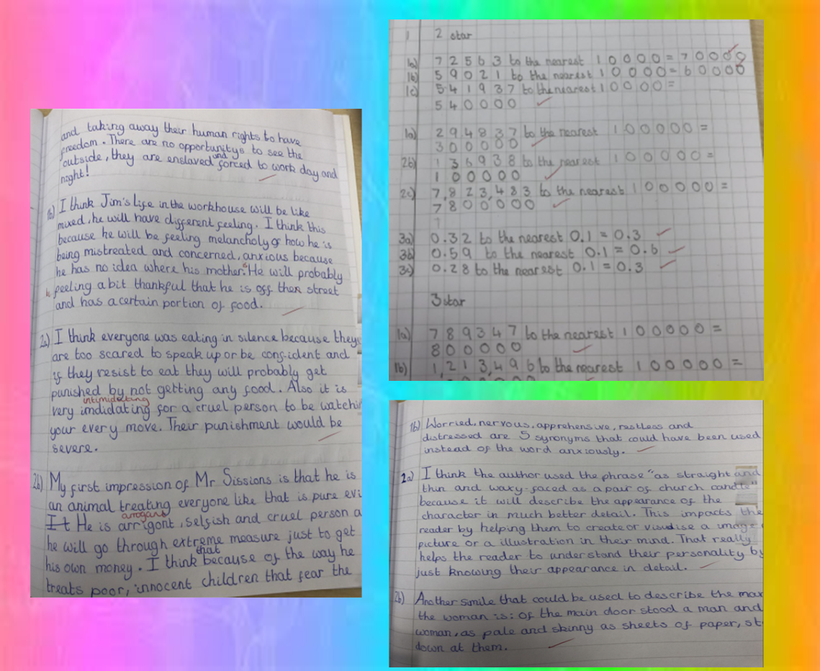 and taking away their human rights to have
freedom. There are no opportunitys to see the
outside, they are enslaved and forced to work day and
night!
1b) I think Jim's life in the workhouse will be like
mixed, he will have different feeling. I think this
because he will be feeling melancholy of how he is
being mistreated and concerned, anxious because
he has no idea where his mother. He will probably
feeling a bit thankful that he is off ther street
and has a certain portion of food.
2a) I think everyone was eating in silence because they
are too scared to speak up or be confident and
if they resist to eat they will probably get
punished by not getting any food. Also it is
intimidating
very imdidating for a cruel person to be watchi
your every move. Their punishment would be
severe.
2b) My first impression of Mr Sissions is that he is
an animal treating everyone like that is pure evi
arrogant
It He is arrigont, selfish and cruel person a
he will go through extreme measure just to get
his own money. I think that because of the way he
treats poor, innocent children that fear the
1 2 star
1a) 72563 to the nearest 10000 = 70000
1b) 59021 to the nearest 10000 = 60000
1c) 541937 to the nearest 10000 =
540000
1a) 294837 to the nearest 100000 =
300000
2b) 136938 to the nearest 100000 =
100000
2c) 7,823,483 to the nearest 100000 =
7800000
3a) 0.32 to the nearest 0.1 = 0.3
3b) 0.59 to the nearest 0.1 = 0.6
3c) 0.28 to the nearest 0.1 = 0.3
3 star
1a) 789347 to the nearest 100000 =
800000
1b) 1,213,496 to the nearest 100000 =
1b) Worried, nervous, apprehensive, restless and
distressed are 5 synonyms that could have been used
instead of the word anxiously.
2a) I think the author used the phrase "as straight and
thin and waxy-faced as a pair of church
because it will describe the appearance of the
character in much better detail. This impacts the
reader by helping them to create or a image
picture or a illustration in their mind. That really
helps the reader to understand their personality by
just knowing their appearance in detail.
3) Another smile that could be used to describe the man
the woman is: of the main door stood a man and
woman, as pale and skinny as sheets of paper, st
down at them.